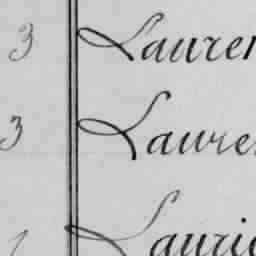 3 Lauren
3 Laure
Lauri